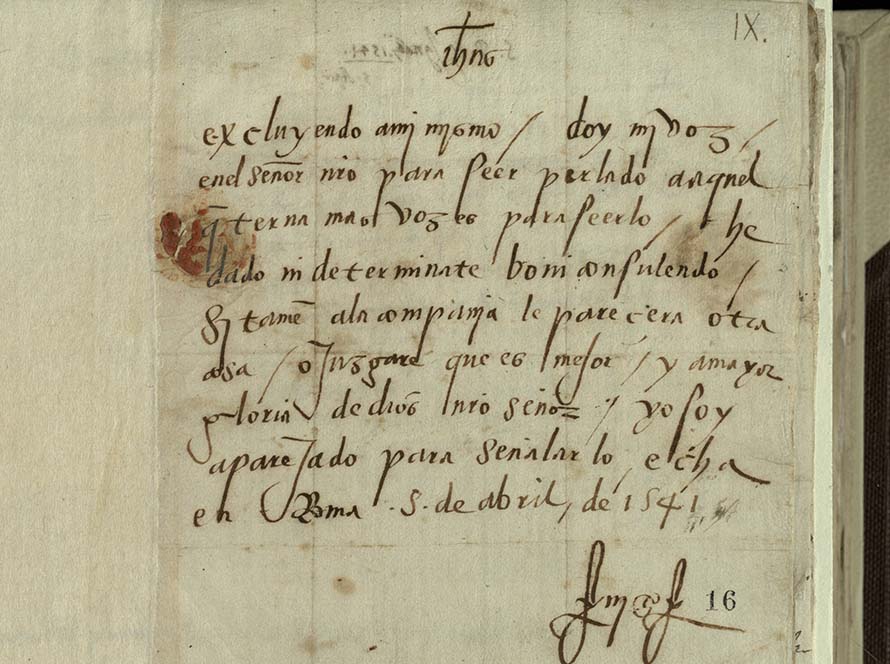 IX.
ihus
excluyendo a mi mismo / doy mi voz /
en el señor nro para seer perlado a aquel
q̄ terna mas vozes para seerlo / he
dado indeterminate boni consulendo /
si tamē a la compañia le parecera otra
cosa / o juzgare que es mejor / y a mayor
gloria de dios nro señor / yo soy
aparejado para señalarlo, echa
en Roma .5. de abril, de 1541
16